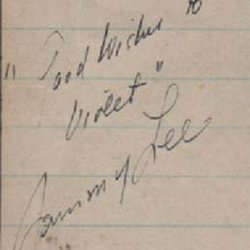 "Good Wishes to
Violet"
Sammy Lee